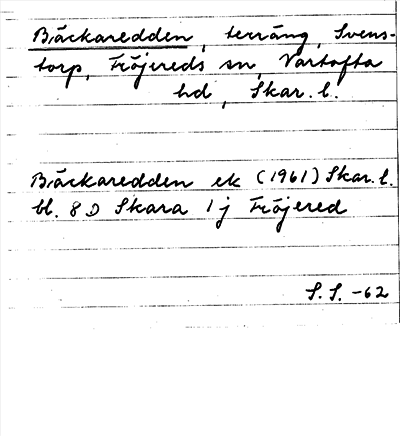 Bäckaredden, terräng, Svens-
torp, Fröjereds sn, Vartofta
hd, Skar. l.
Bäckaredden ek (1961) Skar. l.
bl. 8 D Skara 1 j Fröjered
S. S. -62